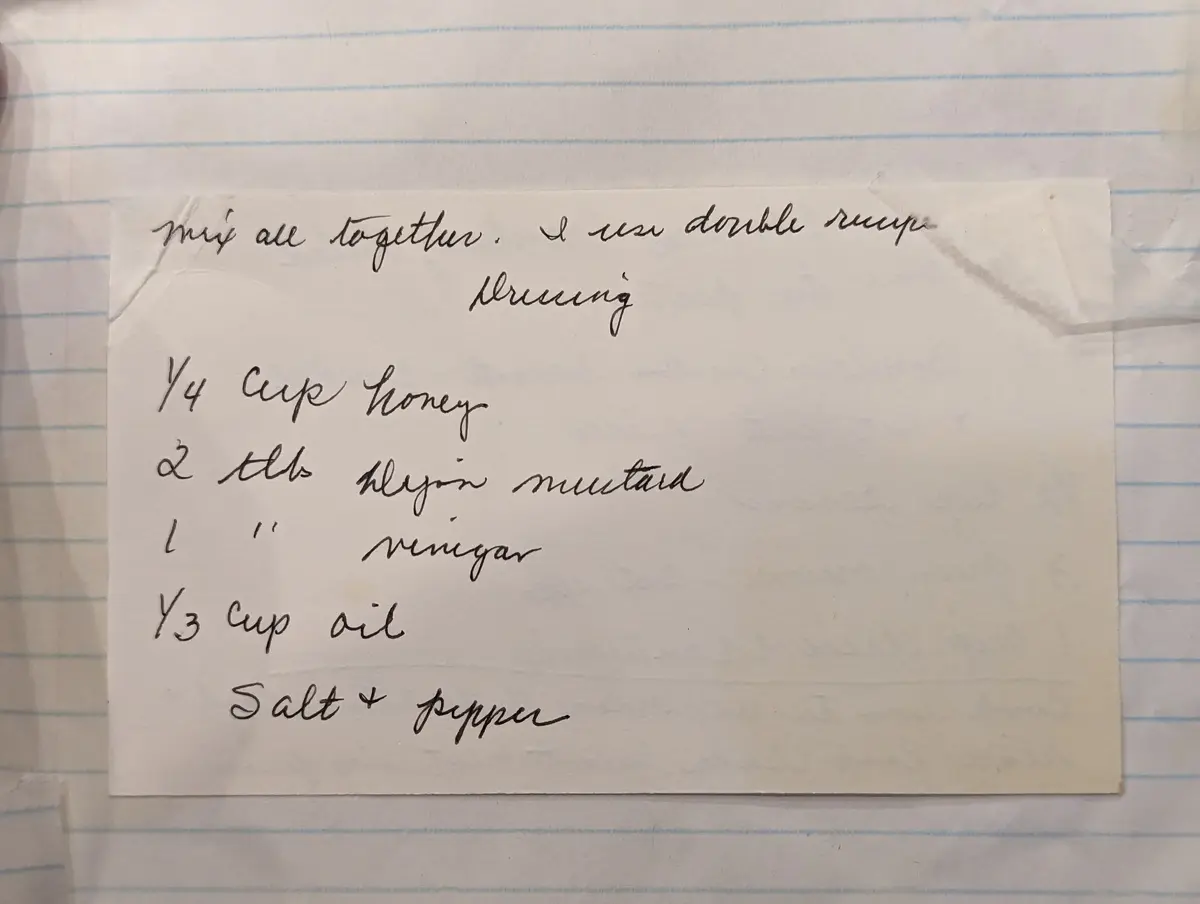 mix all together. I use double recipe
Dressing
1/4 cup honey
2 tlbs Dijon mustard
1 " vinigar
1/3 cup oil
Salt + pepper